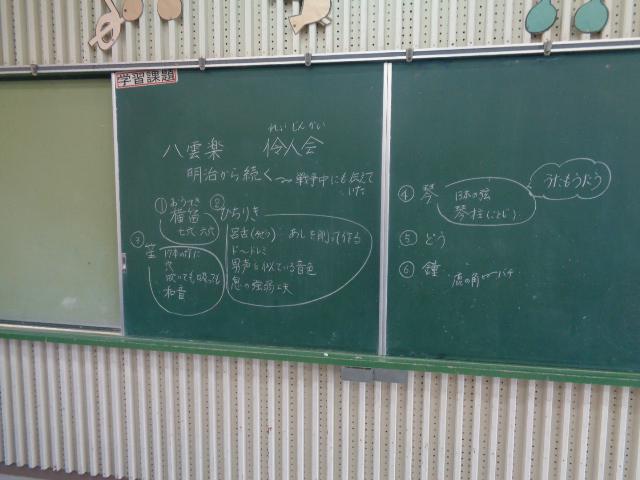 学習課題
八雲楽
れいじんかい
伶人会
明治から続く〜戦争中にも伝えていた
① おうてき
横笛
七穴 六穴
② ひちりき
あしを削って作る
ド〜ドレミ
男声と似ている音色
息の強弱
③ 笙
17本の竹に
穴
吹いても吸っても
和音
④ 琴
13本の弦
琴柱(ことじ)
うたもうたう
⑤ どう
⑥ 鐘
鹿の角 バチ